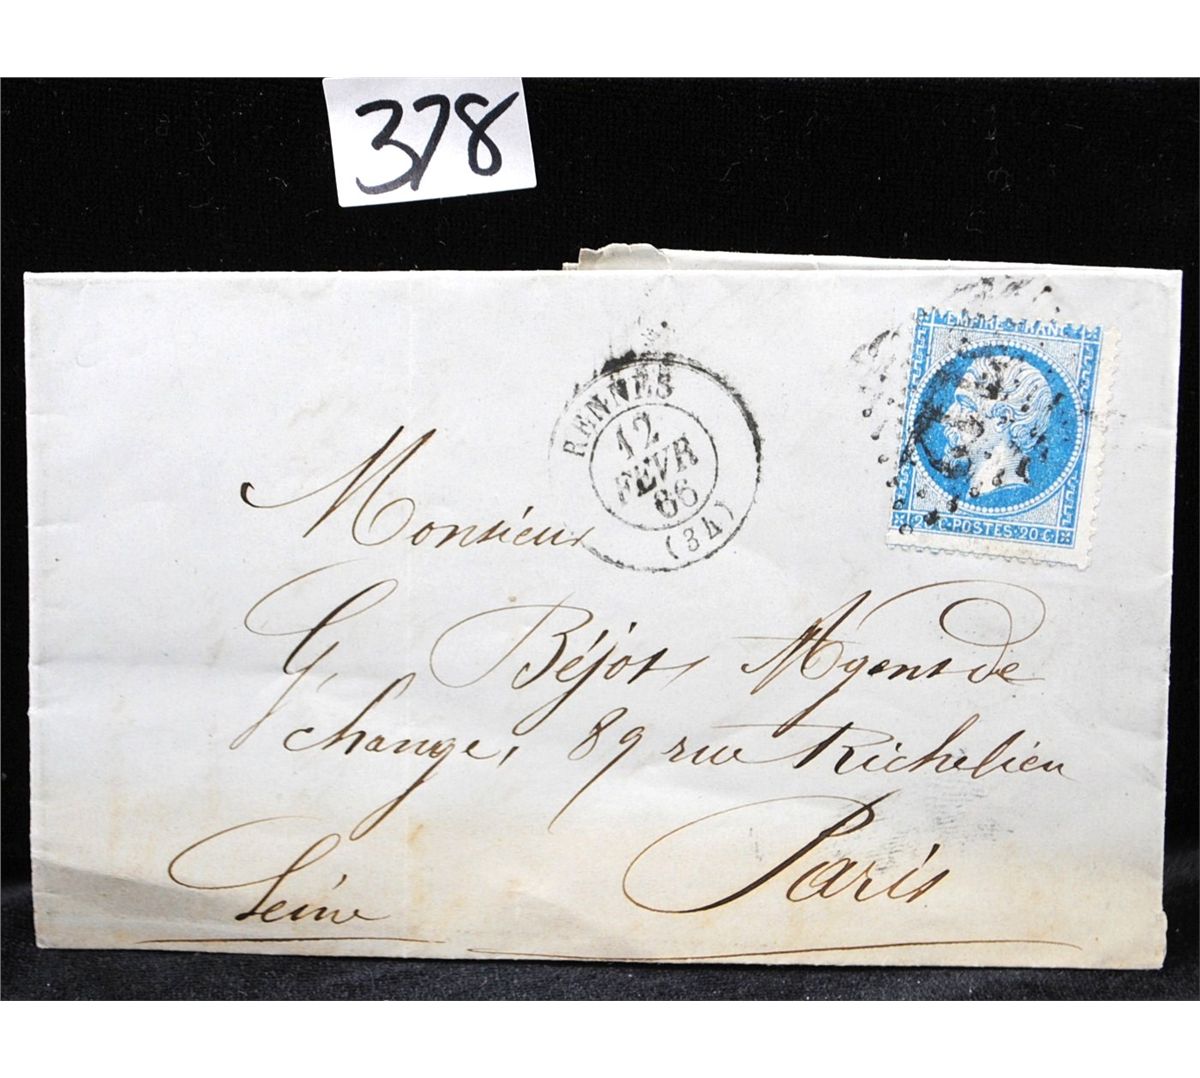 378
EMPIRE FRANC
RENNES
12
FEVR
86
(34)
20 C POSTES 20 C
Monsieur
G, Béjot Agent de
change, 89 rue Richelieu
Paris
Seine